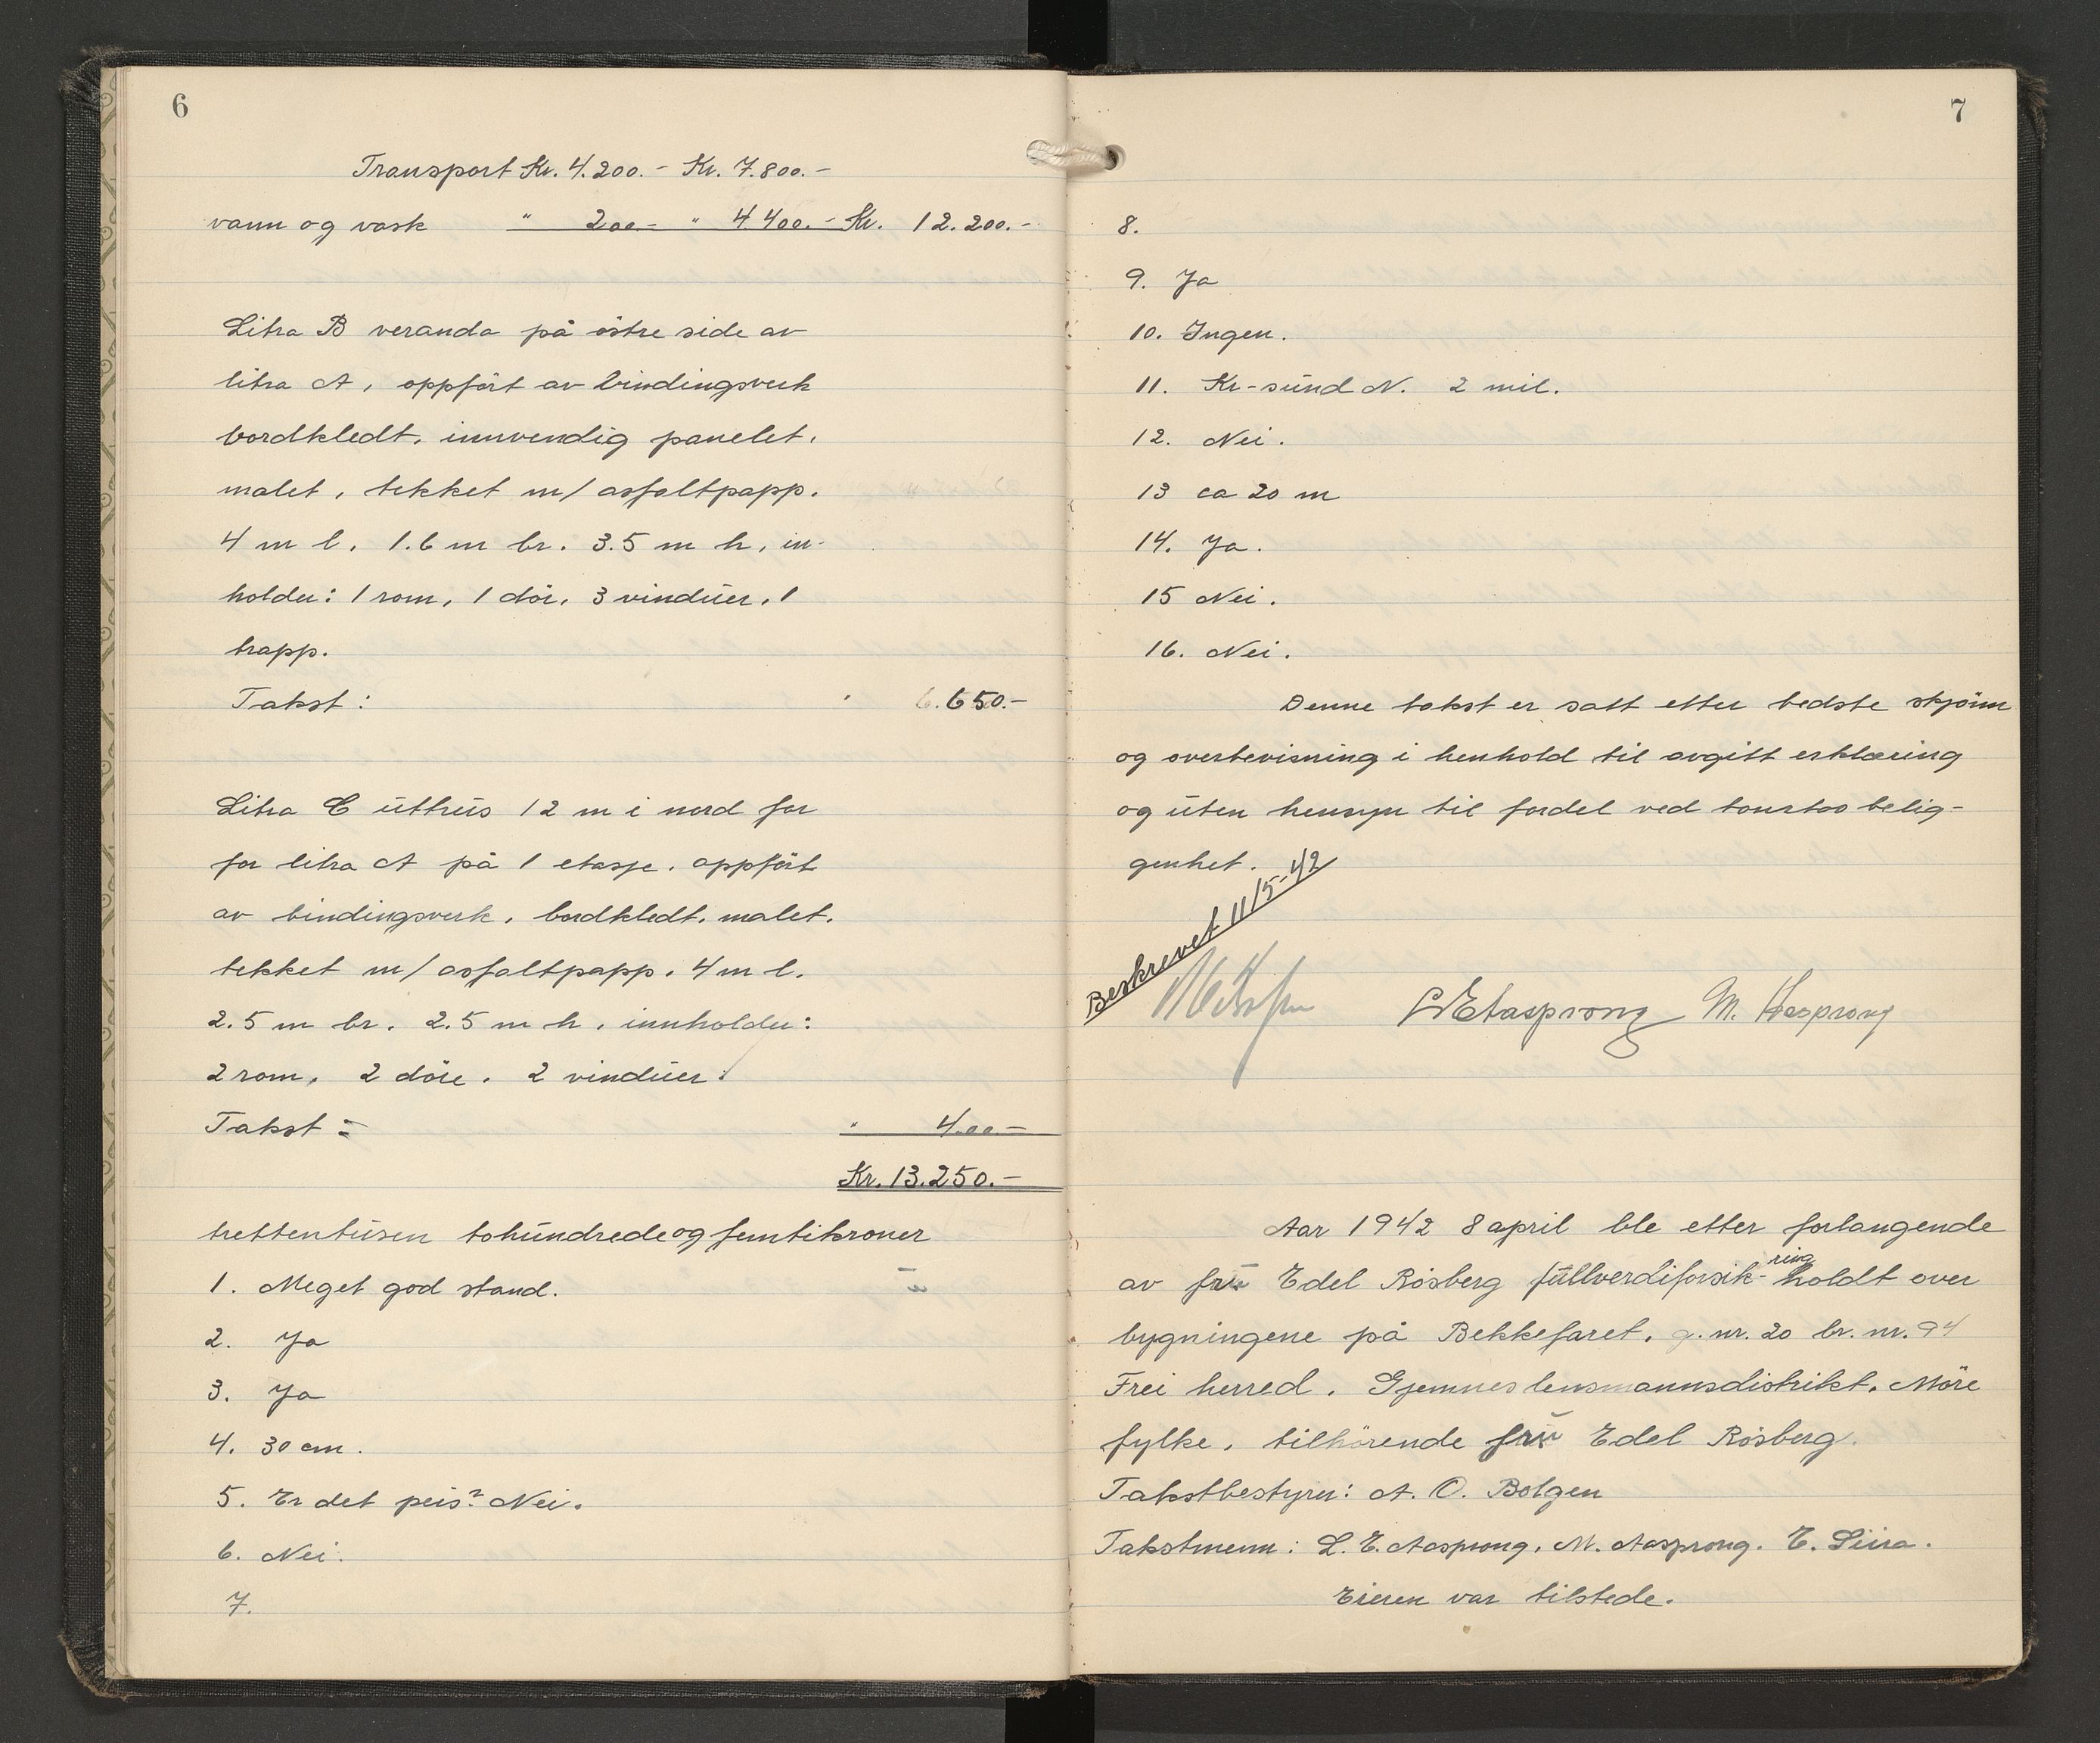 6
Transport Kr. 4.200.- Kr. 7.800.-
vann og vask " 200.- " 4.400.- Kr. 12.200.-
Litra B veranda på östre side av
litra A, oppfört av bindingsverk
bordkledt, innvendig panelet,
malet, tekket m/ asfaltpapp.
4 m l. 1.6 m br. 3.5 m h, in-
holder: 1 rom, 1 dör, 3 vindüer, 1
trapp.
Takst: " 650.-
Litra C üthüs 12 m i nord for
for litra A på 1 etasje, oppfört
av bindingsverk, bordkledt, malet,
tekket m/ asfaltpapp. 4 m l.
2.5 m br. 2.5 m h, innholder:
2 rom, 2 döre, 2 vindüer.
Takst: " 400.-
Kr. 13.250.-
trettentüsen tohündrede og femtikroner
1. Meget god stand.
2. Ja
3. Ja
4. 30 cm.
5. Er det peis? Nei.
6. Nei.
7.
7
8.
9. Ja
10. Ingen.
11. Kr-sünd N. 2 mil.
12. Nei.
13 ca 20 m
14. Ja.
15 Nei.
16. Nei.
Denne takst er satt etter bedste skjönn
og overbevisning i henhold til avgitt erklæring
og üten hensyn til fordel ved tomtas belig-
genhet.
Beskrevet 11/5-42
L E Aasprong M. Aasprong
Aar 1942 8 april ble etter forlangende
av frü Edel Rösberg füllverdiforsik-ring holdt over
bygningene på Bekkefaret, g. nr. 20 br. nr. 94
Frei herred, Gjemnes lensmannsdistrikt, Möre
fylke, tilhörende frü Edel Rösberg.
Takstbestyrer: A. O. Bolgen
Takstmenn: L. E. Aasprong, M. Aasprong. E. Liira.
Eieren var tilstede.